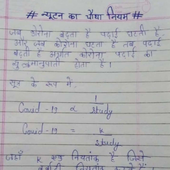 # न्यूटन का चौथा नियम #
जब कोरोना बढ़ता है पढ़ाई घटती है
और जब कोरोना घटता है तब पढ़ाई
बढ़ती है अर्थात कोरोना पढ़ाई का
व्युत्क्रमानुपाती होता है।
सूत्र के रूप में
Covid-19 ∝ 1/study
Covid-19 = k/study
जहाँ k एक नियतांक है जिसे